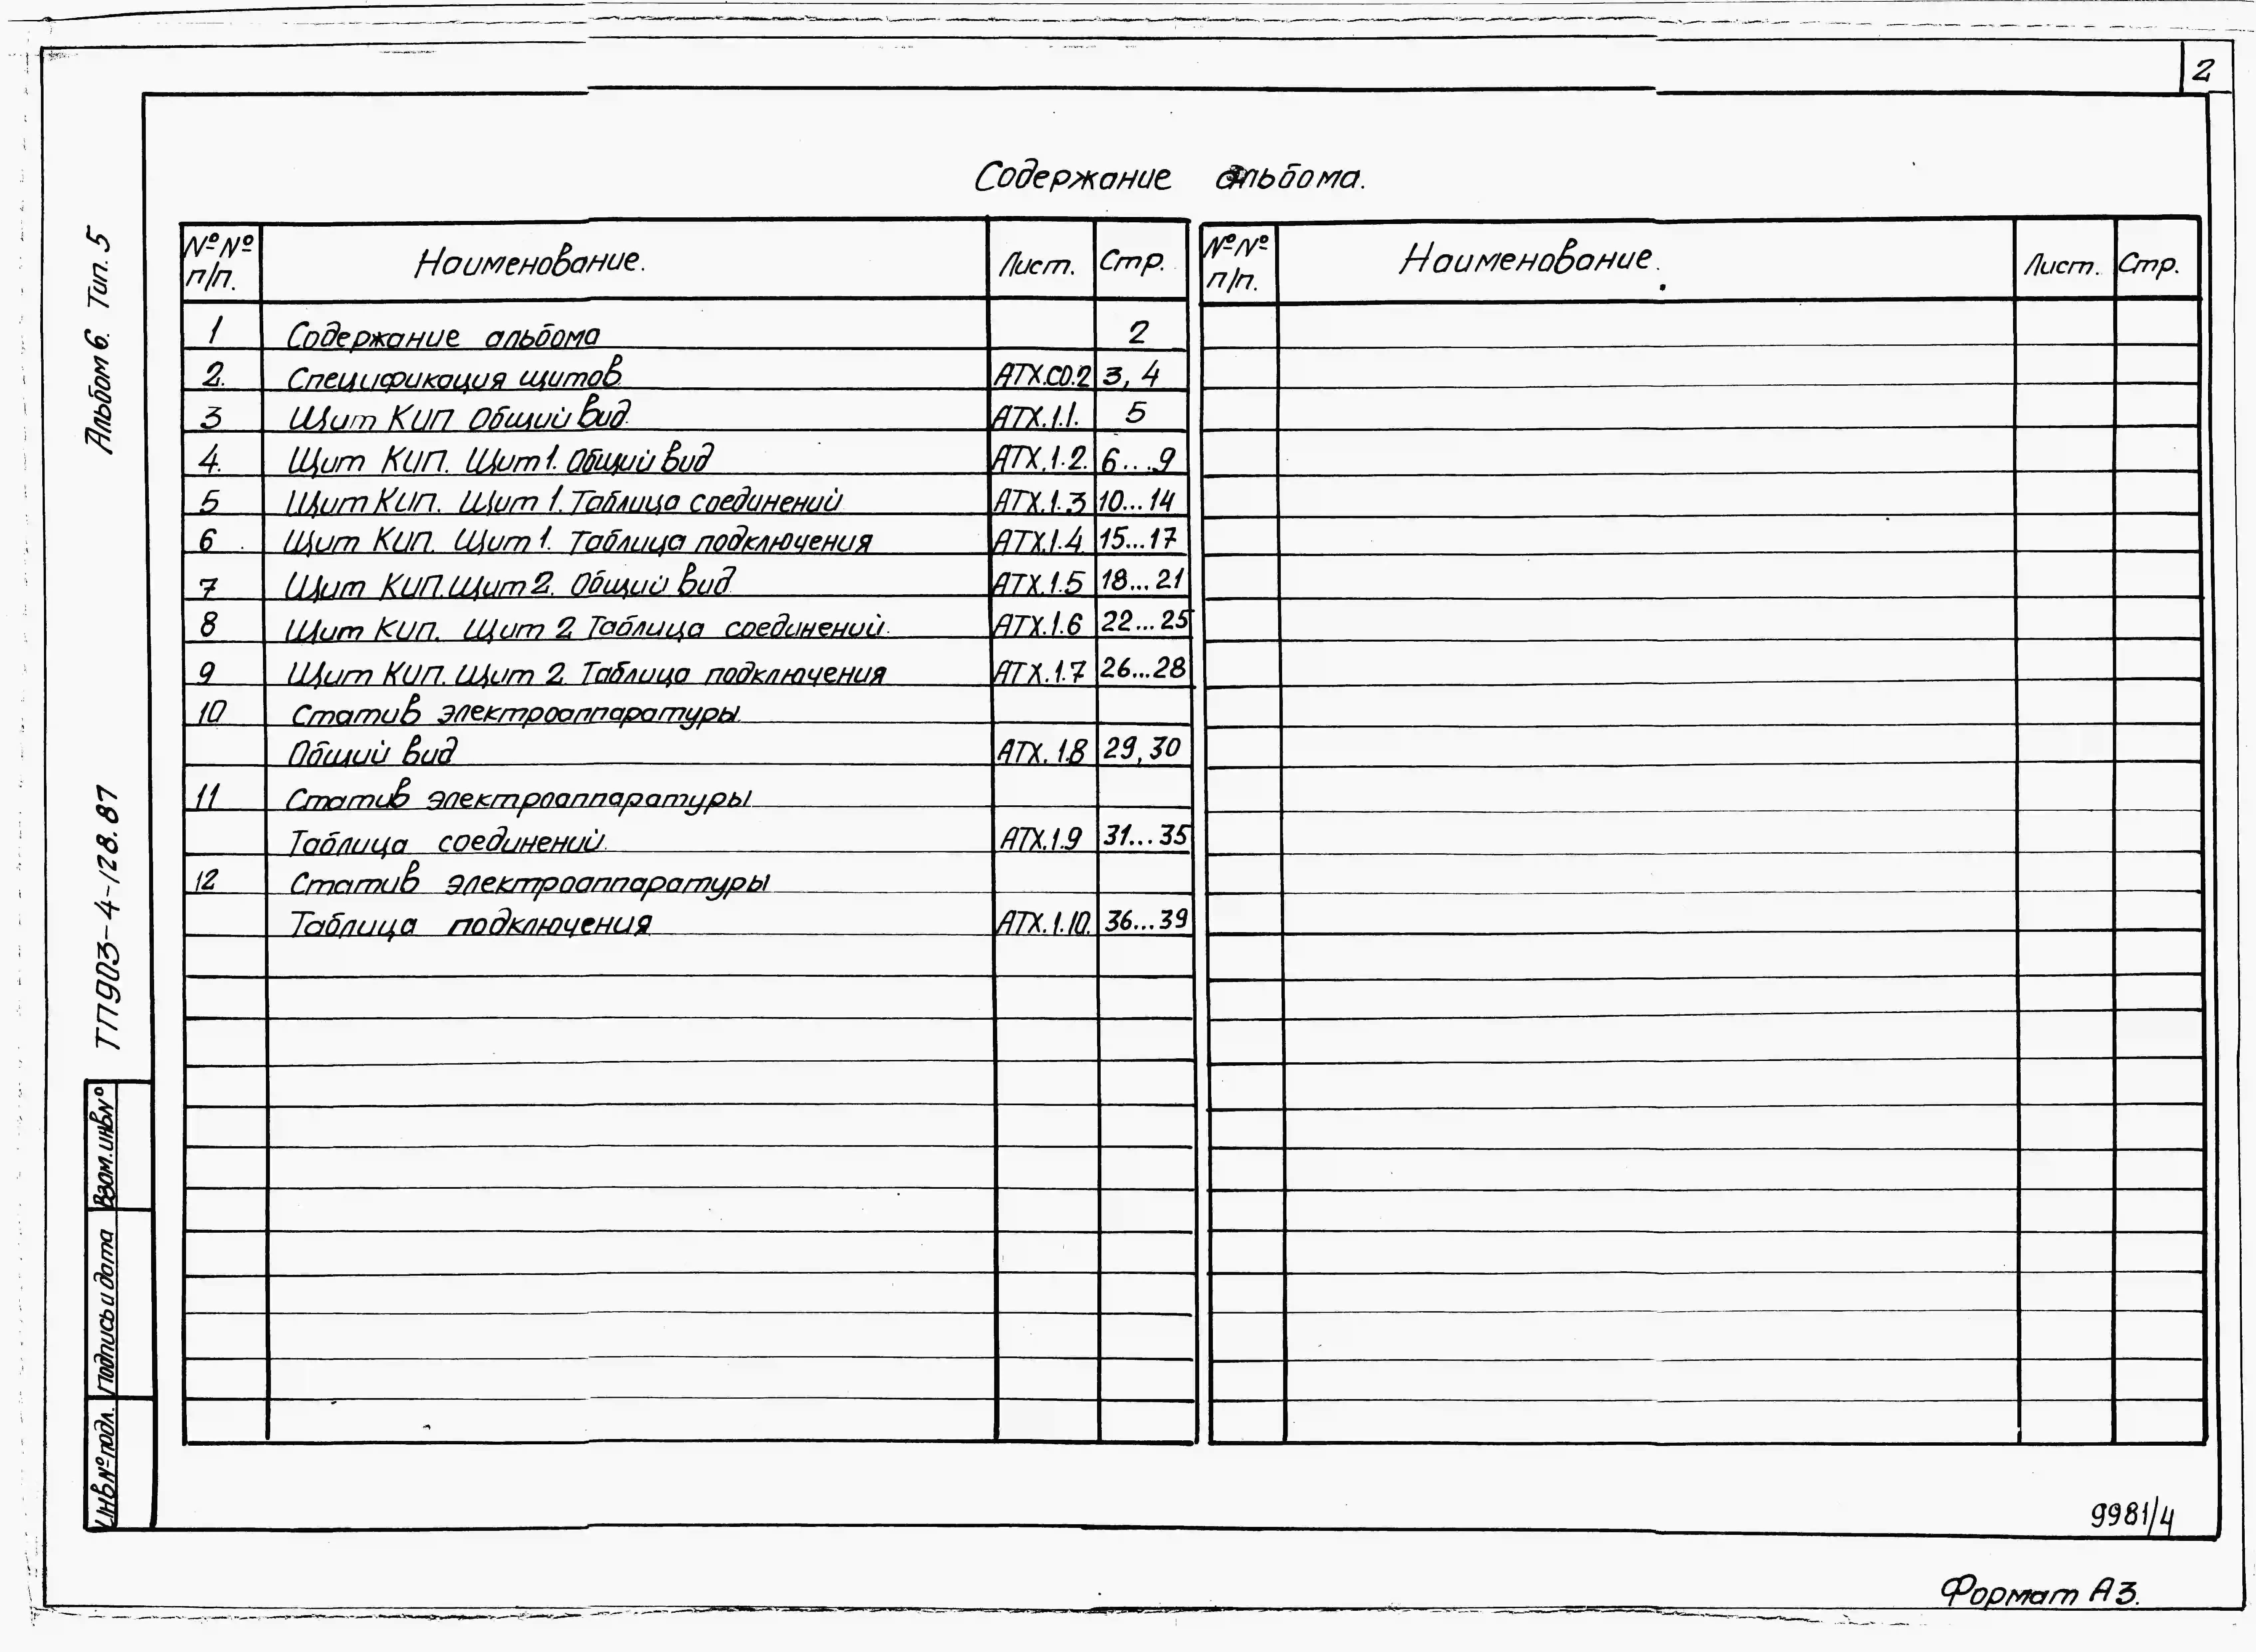 2
Содержание альбома.
№№ п/п. Наименование. Лист. Стр.
№№ п/п. Наименование. Лист. Стр.
1 Содержание альбома 2
2. Спецификация щитов АТХ.СО.2 3, 4
3 Щит КИП Общий вид. АТХ.1.1. 5
4. Щит КИП. Щит 1. Общий вид АТХ.1.2. 6...9
5 Щит КИП. Щит 1. Таблица соединений АТХ.1.3 10...14
6 Щит КИП. Щит 1. Таблица подключения АТХ.1.4. 15...17
7 Щит КИП. Щит 2. Общий вид АТХ.1.5 18...21
8 Щит КИП. Щит 2. Таблица соединений. АТХ.1.6 22...25
9 Щит КИП. Щит 2. Таблица подключения АТХ.1.7 26...28
10 Статив электроаппаратуры.
Общий вид АТХ.1.8 29,30
11 Статив электроаппаратуры
Таблица соединений. АТХ.1.9 31...35
12 Статив электроаппаратуры
Таблица подключения АТХ.1.10. 36...39
Альбом 6. Тип. 5
ТП903-4-128.87
Взам.инв№
Подпись и дата
Инв№подл.
9981/4
Формат А3.